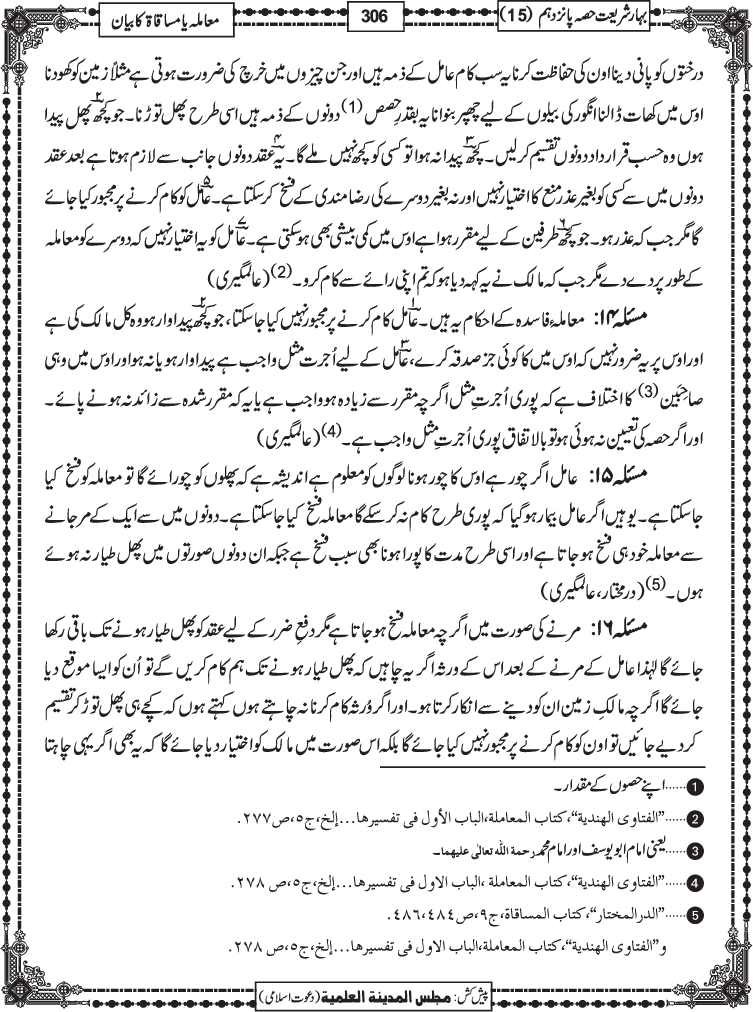 بہارِ شریعت حصہ پانزدہم (15)
306
معاملہ یا مساقاۃ کا بیان
درختوں کو پانی دینا اون کی حفاظت کرنا یہ سب کام عامل کے ذمہ ہیں اور جن چیزوں میں خرچ کی ضرورت ہوتی ہے مثلاً زمین کو کھودنا
اوس میں کھات ڈالنا انگور کی بیلوں کے لیے چھپر بنوانا یہ بقدرِ حصص (1) دونوں کے ذمہ ہیں اسی طرح پھل توڑنا۔ جو کچھ۲ پھل پیدا
ہوں وہ حسب قرار داد دونوں تقسیم کرلیں۔ کچھ۳ پیدا نہ ہوا تو کسی کو کچھ نہیں ملے گا۔ یہ۴ عقد دونوں جانب سے لازم ہوتا ہے بعد عقد
دونوں میں سے کسی کو بغیر عذر منع کا اختیار نہیں اور نہ بغیر دوسرے کی رضا مندی کے فسخ کرسکتا ہے۔ عامل۵ کو کام کرنے پر مجبور کیا جائے
گا مگر جب کہ عذر ہو۔ جو کچھ۶ طرفین کے لیے مقرر ہوا ہے اوس میں کمی بیشی بھی ہوسکتی ہے۔ عامل۷ کو یہ اختیار نہیں کہ دوسرے کو معاملہ
کے طور پر دے دے مگر جب کہ مالک نے یہ کہہ دیا ہو کہ تم اپنی رائے سے کام کرو۔ (2) (عالمگیری)
مسئلہ ۱۴: معاملۂ فاسدہ کے احکام یہ ہیں۔ عامل۱ کام کرنے پر مجبور نہیں کیا جاسکتا، جو کچھ۲ پیداوار ہو وہ کل مالک کی ہے
اور اوس پر یہ ضرور نہیں کہ اوس میں کا کوئی جز صدقہ کرے، عامل۳ کے لیے اُجرت مثل واجب ہے پیداوار ہو یا نہ ہو اور اوس میں وہی
صاحبَین (3) کا اختلاف ہے کہ پوری اُجرتِ مثل اگرچہ مقرر سے زیادہ ہو واجب ہے یا یہ کہ مقرر شدہ سے زائد نہ ہونے پائے۔
اور اگر حصہ کی تعیین نہ ہوئی ہو تو بالاتفاق پوری اُجرتِ مثل واجب ہے۔ (4) (عالمگیری)
مسئلہ ۱۵: عامل اگر چور ہے اوس کا چور ہونا لوگوں کو معلوم ہے اندیشہ ہے کہ پھلوں کو چورائے گا تو معاملہ کو فسخ کیا
جاسکتا ہے۔ یوہیں اگر عامل بیمار ہوگیا کہ پوری طرح کام نہ کرسکے گا معاملہ فسخ کیا جاسکتا ہے۔ دونوں میں سے ایک کے مرجانے
سے معاملہ خود ہی فسخ ہوجاتا ہے اور اسی طرح مدت کا پورا ہونا بھی سبب فسخ ہے جبکہ ان دونوں صورتوں میں پھل طیار نہ ہوئے
ہوں۔ (5) (درمختار، عالمگیری)
مسئلہ ۱۶: مرنے کی صورت میں اگرچہ معاملہ فسخ ہوجاتا ہے مگر دفعِ ضرر کے لیے عقد کو پھل طیار ہونے تک باقی رکھا
جائے گا لہٰذا عامل کے مرنے کے بعد اس کے ورثہ اگر یہ چاہیں کہ پھل طیار ہونے تک ہم کام کریں گے تو اُن کو ایسا موقع دیا
جائے گا اگرچہ مالکِ زمین ان کو دینے سے انکار کرتا ہو۔ اور اگر وُرثہ کام کرنا نہ چاہتے ہوں کہتے ہوں کہ کچے ہی پھل توڑ کر تقسیم
کردیے جائیں تو اون کو کام کرنے پر مجبور نہیں کیا جائے گا بلکہ اس صورت میں مالک کو اختیار دیا جائے گا کہ یہ بھی اگر یہی چاہتا
1 ......اپنے حصوں کے مقدار۔
2 ......"الفتاوی الھندیۃ"، کتاب المعاملۃ، الباب الأول فی تفسیرھا...إلخ، ج٥، ص٢٧٧.
3 ......یعنی امام ابو یوسف اور امام محمد رحمۃ اللہ تعالٰی علیھما۔
4 ......"الفتاوی الھندیۃ"، کتاب المعاملۃ، الباب الاول فی تفسیرھا...إلخ، ج٥، ص ٢٧٨.
5 ......"الدر المختار"، کتاب المساقاۃ، ج٩، ص٤٨٤، ٤٨٦.
و "الفتاوی الھندیۃ"، کتاب المعاملۃ، الباب الاول فی تفسیرھا...إلخ، ج٥، ص ٢٧٨.
پیش کش: مجلس المدینۃ العلمیۃ (دعوتِ اسلامی)